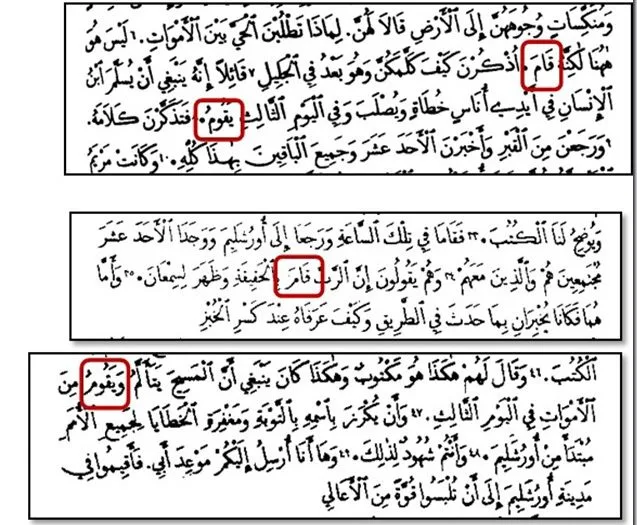 وَمُنَكِّسَاتٍ وُجُوهَهُنَّ إِلَى ٱلْأَرْضِ قَالَا لَهُنَّ. لِمَاذَا تَطْلُبْنَ ٱلْحَيَّ بَيْنَ ٱلْأَمْوَاتِ. لَيْسَ هُوَ
هٰهُنَا لٰكِنَّهُ قَامَ. أُذْكُرْنَ كَيْفَ كَلَّمَكُنَّ وَهُوَ بَعْدُ فِي ٱلْجَلِيلِ ٧ قَائِلًا إِنَّهُ يَنْبَغِي أَنْ يُسَلَّمَ ٱبْنُ
ٱلْإِنْسَانِ فِي أَيْدِي أُنَاسٍ خُطَاةٍ وَيُصْلَبَ وَفِي ٱلْيَوْمِ ٱلثَّالِثِ يَقُومُ. فَتَذَكَّرْنَ كَلَامَهُ.
٩ وَرَجَعْنَ مِنَ ٱلْقَبْرِ وَأَخْبَرْنَ ٱلْأَحَدَ عَشَرَ وَجَمِيعَ ٱلْبَاقِينَ بِهٰذَا كُلِّهِ. ١٠ وَكَانَتْ مَرْيَمُ
وَيُوضِحُ لَنَا ٱلْكُتُبَ. ٣٣ فَقَامَا فِي تِلْكَ ٱلسَّاعَةِ وَرَجَعَا إِلَى أُورُشَلِيمَ وَوَجَدَا ٱلْأَحَدَ عَشَرَ
مُجْتَمِعِينَ هُمْ وَٱلَّذِينَ مَعَهُمْ ٣٤ وَهُمْ يَقُولُونَ إِنَّ ٱلرَّبَّ قَامَ بِٱلْحَقِيقَةِ وَظَهَرَ لِسِمْعَانَ. ٣٥ وَأَمَّا
هُمَا فَكَانَا يُخْبِرَانِ بِمَا حَدَثَ فِي ٱلطَّرِيقِ وَكَيْفَ عَرَفَاهُ عِنْدَ كَسْرِ ٱلْخُبْزِ
ٱلْكُتُبَ. ٤٦ وَقَالَ لَهُمْ هٰكَذَا هُوَ مَكْتُوبٌ وَهٰكَذَا كَانَ يَنْبَغِي أَنَّ ٱلْمَسِيحَ يَتَأَلَّمُ وَيَقُومُ مِنَ
ٱلْأَمْوَاتِ فِي ٱلْيَوْمِ ٱلثَّالِثِ. ٤٧ وَأَنْ يُكْرَزَ بِٱسْمِهِ بِٱلتَّوْبَةِ وَمَغْفِرَةِ ٱلْخَطَايَا لِجَمِيعِ ٱلْأُمَمِ
مُبْتَدَأً مِنْ أُورُشَلِيمَ. ٤٨ وَأَنْتُمْ شُهُودٌ لِذٰلِكَ. ٤٩ وَهَا أَنَا أُرْسِلُ إِلَيْكُمْ مَوْعِدَ أَبِي. فَأَقِيمُوا فِي
مَدِينَةِ أُورُشَلِيمَ إِلَى أَنْ تُلْبَسُوا قُوَّةً مِنَ ٱلْأَعَالِي